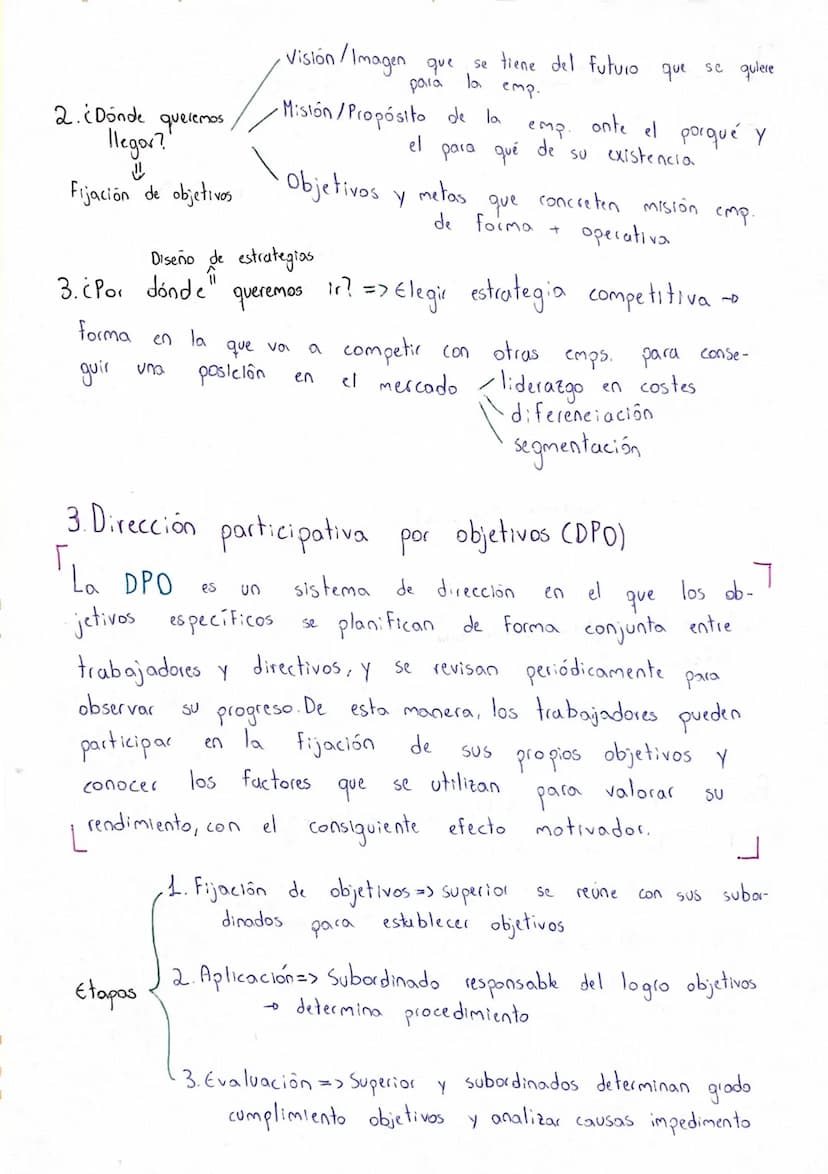 Visión/Imagen que se tiene del futuro que se quiere
para la emp.
2. ¿Dónde queremos
llegar?
⇓
Fijación de objetivos
Misión/Propósito de la emp. ante el porqué y
el para qué de su existencia
Objetivos y metas que concreten misión emp.
de forma + operativa
Diseño de estrategias
3. ¿Por dónde queremos ir? => Elegir estrategia competitiva →
forma en la que va a competir con otras emps. para conse-
guir una posición en el mercado
liderazgo en costes
diferenciación
segmentación
3. Dirección participativa por objetivos (DPO)
La DPO es un sistema de dirección en el que los ob-
jetivos específicos se planifican de forma conjunta entre
trabajadores y directivos, y se revisan periódicamente para
observar su progreso. De esta manera, los trabajadores pueden
participar en la fijación de sus propios objetivos y
conocer los factores que se utilizan para valorar su
rendimiento, con el consiguiente efecto motivador.
Etapas
1. Fijación de objetivos => Superior se reúne con sus subor-
dinados para establecer objetivos
2. Aplicación => Subordinado responsable del logro objetivos
→ determina procedimiento
3. Evaluación => Superior y subordinados determinan grado
cumplimiento objetivos y analizar causas impedimento